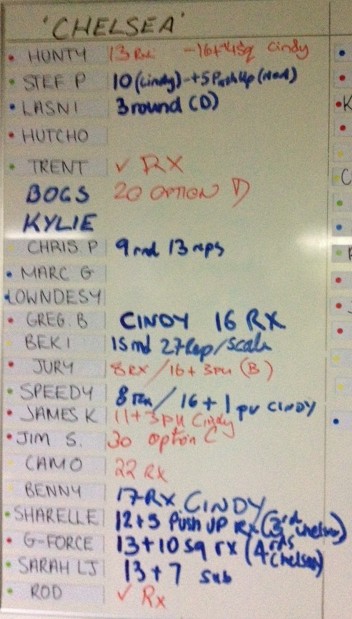 'CHELSEA'
HUNTY 13 Rx -16+4sq Cindy
STEF P 10 (Cindy)-+5 PushUp (mod)
LASNI 3 round (D)
HUTCHO
TRENT ✓ RX
BOGS 20 OPTION D
KYLIE
CHRIS P 9 rnd 13 reps
MARC G
LOWNDESY
GREG.B CINDY 16 RX
BEKI 15 rnd 27 Rep/scale
JURY 8 RX/16+3pu (B)
SPEEDY 8 Rx/16+1 pu CINDY
JAMES K 11+3pu Cindy
JIM S. 30 option C
CAMO 22 RX
BENNY 17 RX CINDY
SHARELLE 12+5 Push UP Rx (3rds Chelsea)
G-FORCE 13+10 sq rx (4 rds Chelsea)
SARAH LJ 13+7 sub
ROD ✓ Rx